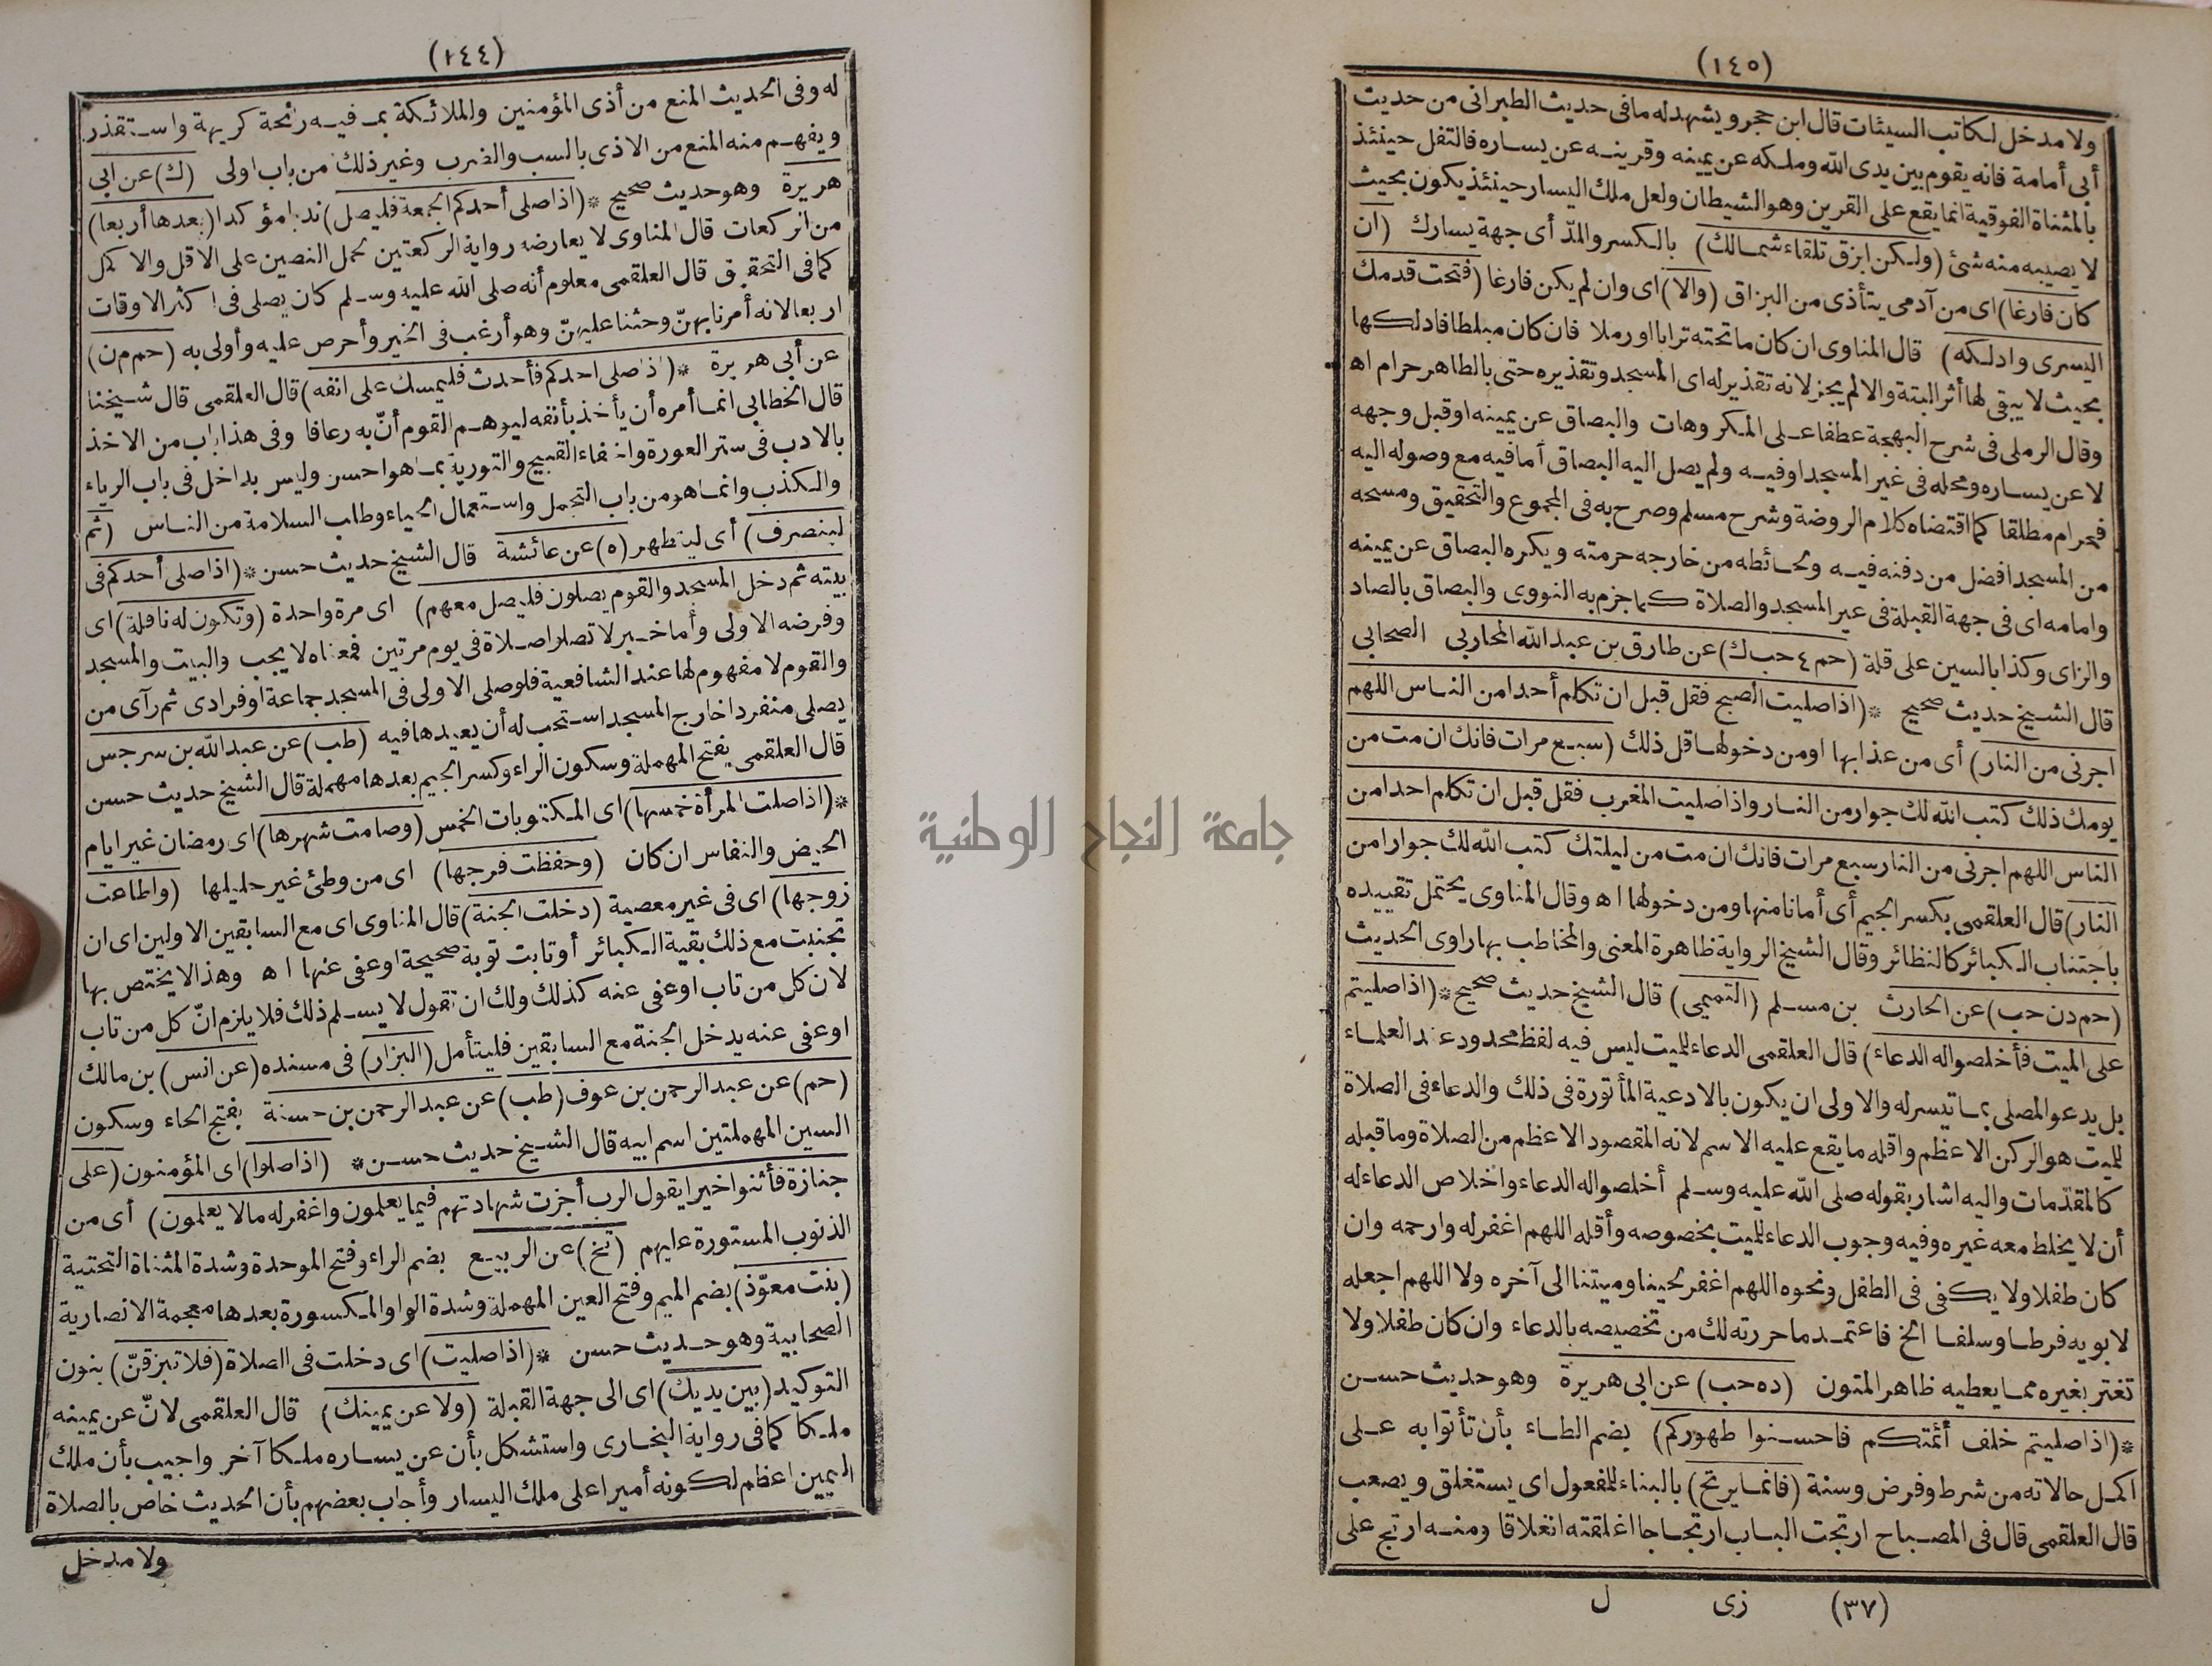 (١٤٤)
له وفى الحديث المنع من أذى المؤمنين والملائكة بمـ فيـه رائحة كريهة واستقذر
ويفهـم منه المنع من الاذى بالسب والضرب وغير ذلك من باب اولى (ك) عن ابى
هريرة وهو حديث صحيح * (اذا صلى أحدكم الجمعة فليصل) ندبا مؤكدا (بعدها أربعا)
من الركعات قال المناوى لا يعارضه رواية الركعتين لحمل النصين على الاقل والاكمل
كما فى التحقيق قال العلقمى معلوم أنه صلى الله عليه وسلم كان يصلى فى اكثر الاوقات
اربعا لانه أمرنا بهنّ وحثنا عليهنّ وهو أرغب فى الخير وأحرص عليه وأولى به (حم م ن)
عن أبى هريرة * (اذا صلى احدكم فأحدث فليمسك على انفه) قال العلقمى قال شيخنا
قال الخطابى انما أمره أن يأخذ بأنفه ليوهم القوم أنّ به رعافا وفى هذا باب من الاخذ
بالادب فى ستر العورة واخفاء القبيح والتورية بما هو احسن وليس بداخل فى باب الرياء
والكذب وانما هو من باب التجمل واستعمال الحياء وطلب السلامة من الناس (ثم
لينصرف) أى ليتطهر (ه) عن عائشة قال الشيخ حديث حسن * (اذا صلى أحدكم فى
بيته ثم دخل المسجد والقوم يصلون فليصل معهم) اى مرة واحدة (وتكون له نافلة) اى
وفرضه الاولى وأما خبر لا تصلوا صلاة فى يوم مرتين فمعناه لا يجب والبيت والمسجد
والقوم لا مفهوم لها عند الشافعية فلو صلى الاولى فى المسجد جماعة او فرادى ثم رآى من
يصلى منفردا خارج المسجد استحب له أن يعيدها فيه (طب) عن عبد الله بن سرجس
قال العلقمى بفتح المهملة وسكون الراء وكسر الجيم بعدها مهملة قال الشيخ حديث حسن
* (اذا صلت المرأة خمسها) اى المكتوبات الخمس (وصامت شهرها) اى رمضان غير ايام
الحيض والنفاس ان كان (وحفظت فرجها) اى من وطئ غير حليلها (واطاعت
زوجها) اى فى غير معصية (دخلت الجنة) قال المناوى اى مع السابقين الاولين اى ان
تجنبت مع ذلك بقية الكبائر أو تابت توبة صحيحة او عفى عنها اه وهذا لا يختص بها
لان كل من تاب او عفى عنه كذلك ولك ان تقول لا يسلم ذلك فلا يلزم انّ كل من تاب
او عفى عنه يدخل الجنة مع السابقين فليتأمل (البزار) فى مسنده (عن انس) بن مالك
(حم) عن عبد الرحمن بن عوف (طب) عن عبد الرحمن بن حسنة بفتح الحاء وسكون
السين المهملتين اسم ابيه قال الشيخ حديث حسن * (اذا صلوا) اى المؤمنون (على
جنازة فأثنوا خيرا يقول الرب أجزت شهادتهم فيما يعلمون واغفر له ما لا يعلمون) أى من
الذنوب المستورة عليهم (تخ) عن الربيع بضم الراء وفتح الموحدة وشدة المثناة التحتية
(بنت معوّذ) بضم الميم وفتح العين المهملة وشدة الواو المكسورة بعدها معجمة الانصارية
الصحابية وهو حديث حسن * (اذا صليت) اى دخلت فى الصلاة (فلا تبزقنّ) بنون
التوكيد (بين يديك) اى الى جهة القبلة (ولا عن يمينك) قال العلقمى لانّ عن يمينه
ملكا كما فى رواية البخارى واستشكل بأن عن يساره ملكا آخر واجيب بأن ملك
اليمين اعظم لكونه أميرا على ملك اليسار وأجاب بعضهم بأن الحديث خاص بالصلاة
ولا مدخل
(١٤٥)
ولا مدخل لكاتب السيئات قال ابن حجر ويشهد له ما فى حديث الطبرانى من حديث
أبى أمامة فانه يقوم بين يدى الله وملكه عن يمينه وقرينه عن يساره فالتفل حينئذ
بالمثناة الفوقية انما يقع على القرين وهو الشيطان ولعل ملك اليسار حينئذ يكون بحيث
لا يصيبه منه شئ (ولكن ابزق تلقاء شمالك) بالكسر والمدّ أى جهة يسارك (ان
كان فارغا) اى من آدمى يتأذى من البزاق (والا) اى وان لم يكن فارغا (فتحت قدمك
اليسرى وادلكه) قال المناوى ان كان ما تحته ترابا او رملا فان كان مبلطا فادلكها
بحيث لا يبقى لها أثر البتة والا لم يجز لانه تقذير له اى المسجد وتقذيره حتى بالطاهر حرام اه
وقال الرملى فى شرح البهجة عطفا على المكروهات والبصاق عن يمينه او قبل وجهه
لا عن يساره ومحله فى غير المسجد او فيه ولم يصل اليه البصاق أما فيه مع وصوله اليه
فحرام مطلقا كما اقتضاه كلام الروضة وشرح مسلم وصرح به فى المجموع والتحقيق ومسحه
من المسجد افضل من دفنه فيه ولحائطه من خارجه حرمته ويكره البصاق عن يمينه
وامامه اى فى جهة القبلة فى غير المسجد والصلاة كما جزم به النووى والبصاق بالصاد
والزاى وكذا بالسين على قلة (حم ٤ حب ك) عن طارق بن عبد الله المحاربى الصحابى
قال الشيخ حديث صحيح * (اذا صليت الصبح فقل قبل ان تكلم أحدا من الناس اللهم
اجرنى من النار) أى من عذابها او من دخولها قل ذلك (سبع مرات فانك ان مت من
يومك ذلك كتب الله لك جوار من النار واذا صليت المغرب فقل قبل ان تكلم احدا من
الناس اللهم اجرنى من النار سبع مرات فانك ان مت من ليلتك كتب الله لك جوارا من
النار) قال العلقمى بكسر الجيم أى أمانا منها ومن دخولها اه وقال المناوى يحتمل تقييده
باجتناب الكبائر كالنظائر وقال الشيخ الرواية ظاهرة المعنى والمخاطب بها راوى الحديث
(حم د ن حب) عن الحارث بن مسلم (التميمى) قال الشيخ حديث صحيح * (اذا صليتم
على الميت فأخلصوا له الدعاء) قال العلقمى الدعاء للميت ليس فيه لفظ محدود عند العلماء
بل يدعو المصلى بما تيسر له والاولى ان يكون بالادعية المأثورة فى ذلك والدعاء فى الصلاة
للميت هو الركن الاعظم واقله ما يقع عليه الاسم لانه المقصود الاعظم من الصلاة وما قبله
كالمقدّمات واليه اشار بقوله صلى الله عليه وسلم أخلصوا له الدعاء واخلاص الدعاء له
أن لا يخلط معه غيره وفيه وجوب الدعاء للميت بخصوصه وأقله اللهم اغفر له وارحمه وان
كان طفلا ولا يكفى فى الطفل ونحوه اللهم اغفر لحينا وميتنا الى آخره ولا اللهم اجعله
لابويه فرطا وسلفا الخ فاعتمد ما حررته لك من تخصيصه بالدعاء وان كان طفلا ولا
تغتر بغيره مما يعطيه ظاهر المتون (د ه حب) عن ابى هريرة وهو حديث حسن
* (اذا صليتم خلف أئمتكم فاحسنوا طهوركم) بضم الطاء بأن تأتوا به على
اكمل حالاته من شرط وفرض وسنة (فانما يرتج) بالبناء للمفعول اى يستغلق ويصعب
قال العلقمى قال فى المصباح ارتجت الباب ارتجاجا اغلقته انغلاقا ومنه ارتج على
(٣٧) زى ل
جامعة النجاح الوطنية